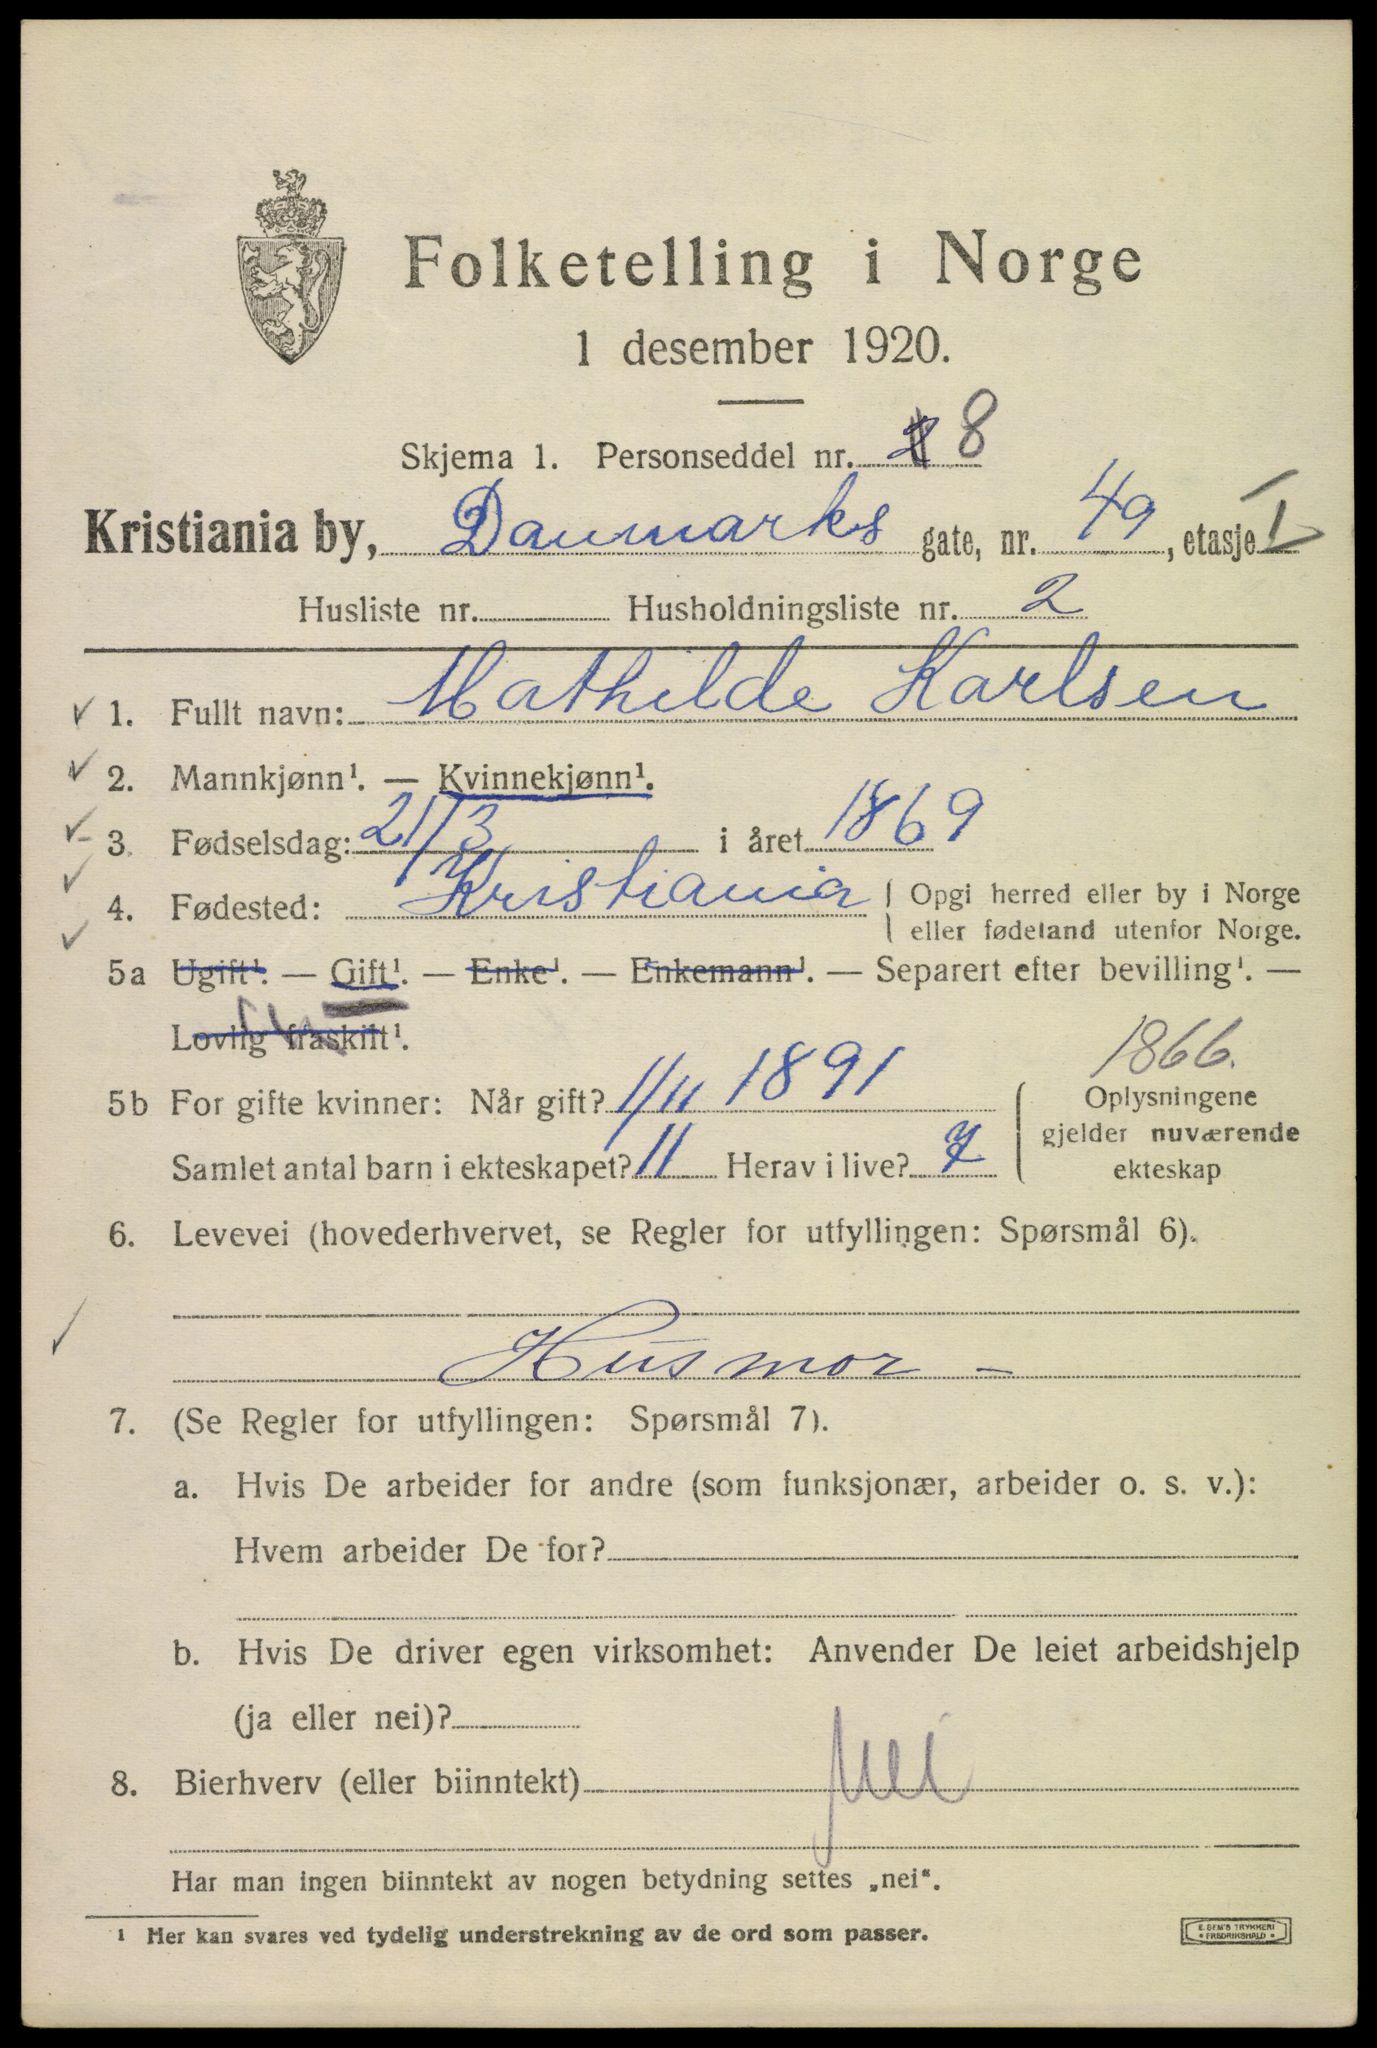 Folketelling i Norge
1 desember 1920.
Skjema 1. Personseddel nr. 8
Kristiania by, Danmarks gate, nr. 49, etasje I
Husliste nr. Husholdningsliste nr. 2
1. Fullt navn: Mathilde Karlsen
2. Mannkjønn¹. — Kvinnekjønn¹.
3. Fødselsdag: 21/3 i året 1869
4. Fødested: Kristiania { Opgi herred eller by i Norge
eller fødeland utenfor Norge.
5a Ugift¹. — Gift¹. — Enke¹. — Enkemann¹. — Separert efter bevilling¹. —
Lovlig fraskilt¹.
1866.
5b For gifte kvinner: Når gift? 1/11 1891
Samlet antal barn i ekteskapet? 11 Herav i live? 7
Oplysningene
gjelder nuværende
ekteskap
6. Levevei (hovederhvervet, se Regler for utfyllingen: Spørsmål 6).
Husmor –
7. (Se Regler for utfyllingen: Spørsmål 7).
a. Hvis De arbeider for andre (som funksjonær, arbeider o. s. v.):
Hvem arbeider De for?
b. Hvis De driver egen virksomhet: Anvender De leiet arbeidshjelp
(ja eller nei)?
8. Bierhverv (eller biinntekt) nei
Har man ingen biinntekt av nogen betydning settes „nei“.
¹ Her kan svares ved tydelig understrekning av de ord som passer.
E. SEM'S TRYKKERI
• FREDRIKSHALD •